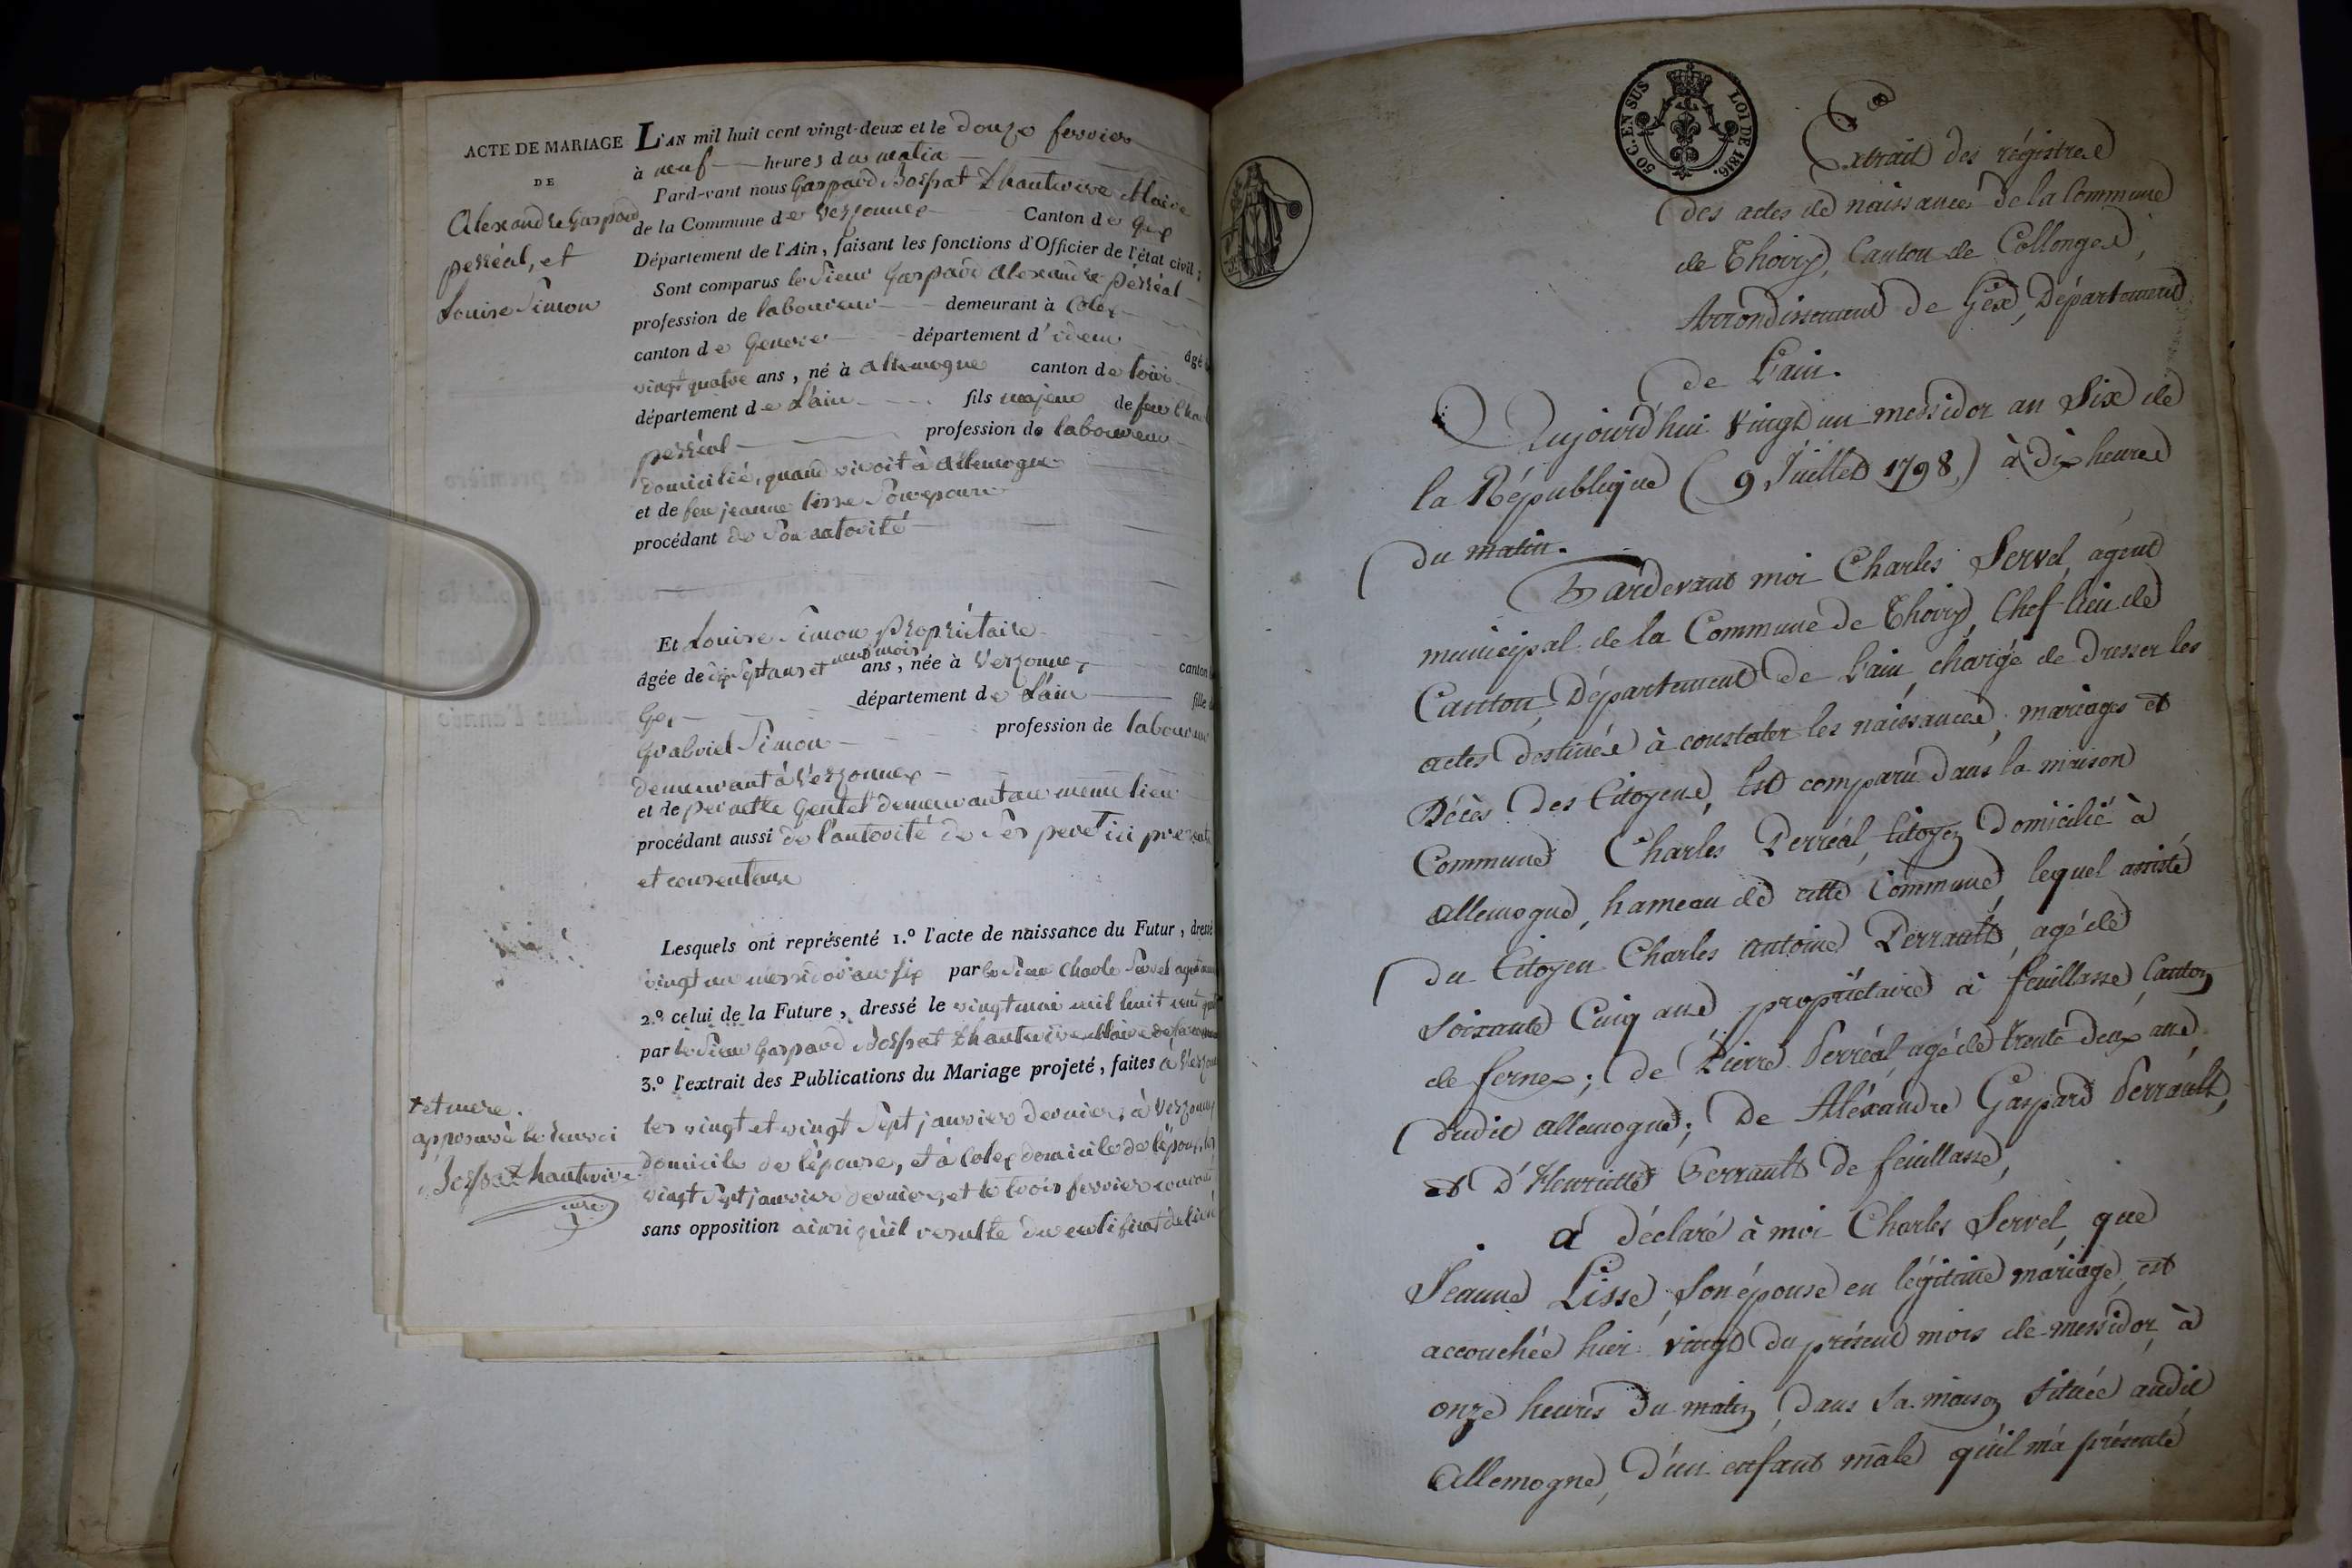 ACTE DE MARIAGE
DE
Alexandre Gaspard
perréal, et
Louise Simon
L'AN mil huit cent vingt-deux et le douze fevrier
à neuf heures du matin
Pard-vant nous Gaspard Bospat Maire
de la Commune de Versonnex Canton de Gex
Département de l'Ain, faisant les fonctions d'Officier de l'état civil;
Sont comparus le Sieur Gaspard Alexandre Perréal
profession de laboureur demeurant à Colex
canton de Geneve département d'idem âgé
vingt quatre ans, né à allemogne canton de
département de L'ain fils majeur de feu
perréal profession de laboureur
domicilié, quand vivoit à allemogne
et de feu jeanne lisse Son epouse
procédant de Son autorité
Et Louise Simon Propriétaire
âgée de dix Sept ans et neuf mois ans, née à Versonnex canton
Gex département de L'ain fille
Gabriel Simon profession de laboureur
demeurant à Versonnex
et de pernette Gentet demeurant au meme lieu
procédant aussi de l'autorité de Ses pere † ici presents
et consentans
Lesquels ont représenté 1.º l'acte de naissance du Futur, dressé
vingt un messidor an six par le Sieur Charle Servel agent
2.º celui de la Future, dressé le vingt mai mil huit cent
par le Sieur Gaspard Bospat Maire de
3.º l'extrait des Publications du Mariage projeté, faites à
les vingt et vingt Sept janvier dernier, à Versonnex
domicile de l'épouse, et à Colex domicile de l'époux, les
vingt Sept janvier dernier, et le trois fevrier courant
sans opposition ainsi qu'il resulte du certificat
† et mere.
approuvé le renvoi
50 C. EN SUS
LOI DE 1816.
Extrait des régistres
des actes de naissances de la Commune
de Thoiry, Canton de Collonges,
Arrondissement de Gex, Département
de L'ain.
Aujourd'hui vingt un messidor an Six de
la République (9 Juillet 1798,) à dix heures
du matin.
Pardevant moi Charles Servel, agent
municipal de la Commune de Thoiry, Chef lieu de
Canton, Département de L'ain chargé de dresser les
actes destinés à constater les naissances, mariages et
Décès des Citoyens, Est comparu dans la maison
Commune Charles Perréal, Citoyen domicilié à
allemogne, hameau de cette Commune, lequel assisté
du Citoyen Charles Antoine Perrault, agé de
soixante Cinq ans propriétaire à feuillasse, Canton
de fernex; de Pierre Perréal, agé de trente deux ans
dudit allemogne; De Aléxandre Gaspard Perrault,
et D'Henriette Perrault de feuillasse,
a déclaré à moi Charles Servel, que
Jeanne Lisse, Son épouse en légitime mariage, est
accouchée hier vingt du présent mois de messidor, à
onze heures du matin, dans Sa maison située audit
Allemogne, d'un enfant mâle qu'il m'a présenté